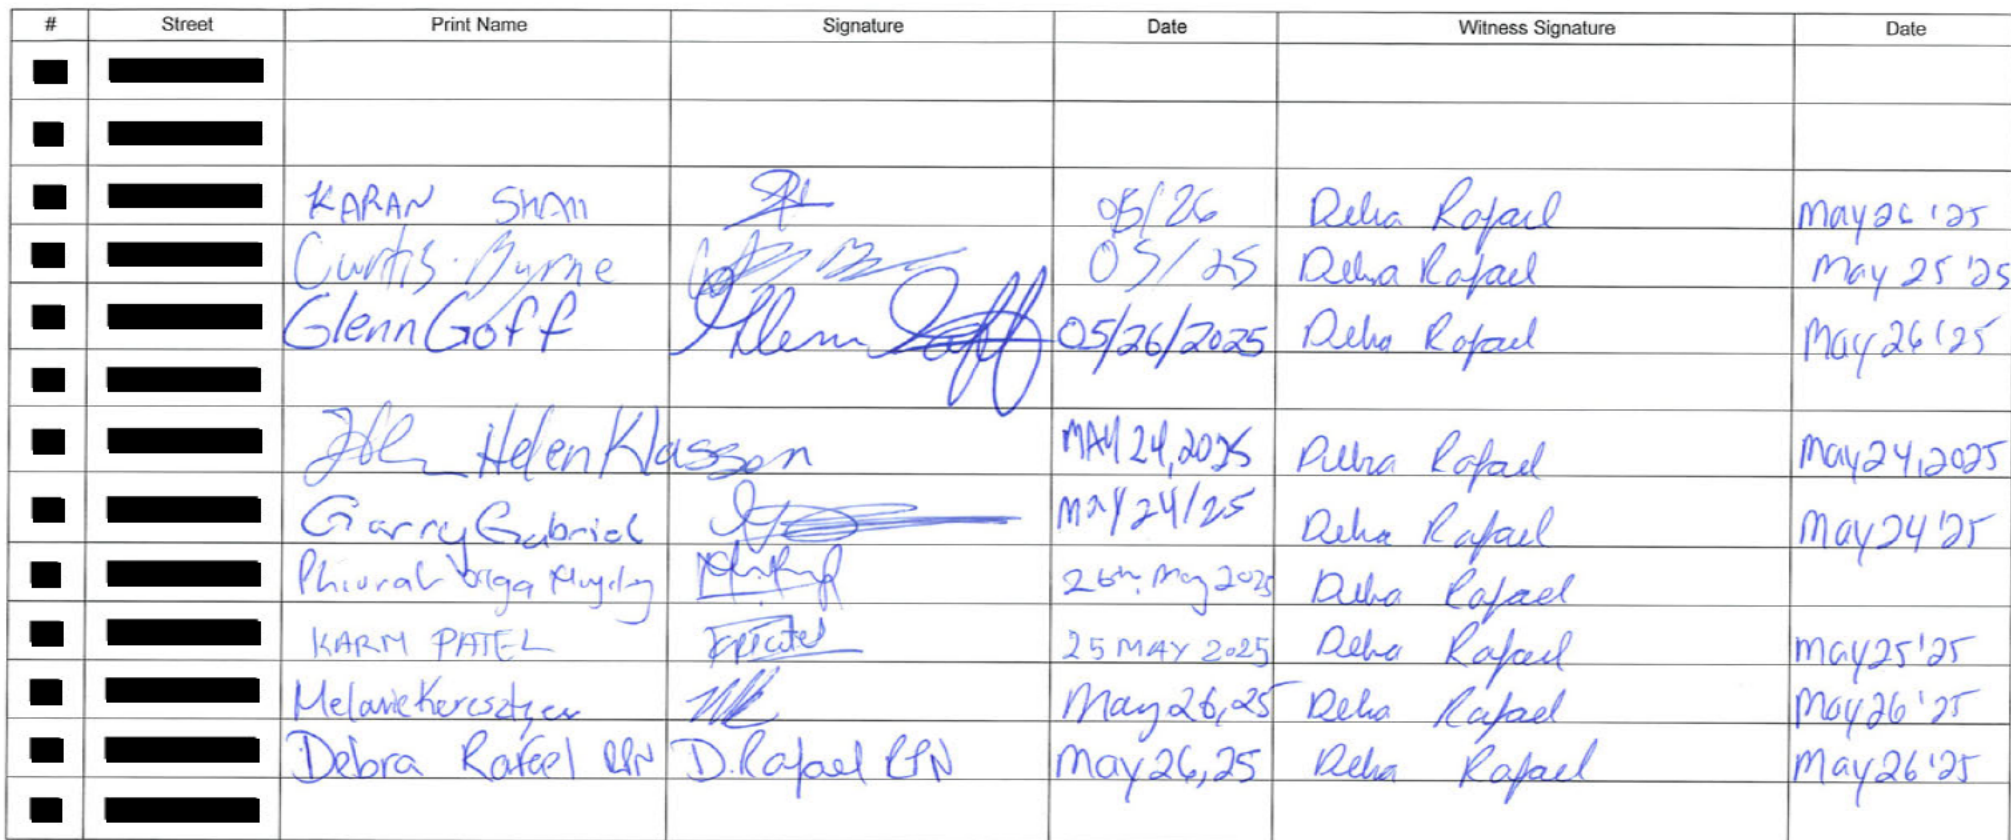 # Street Print Name Signature Date Witness Signature Date
KARAN 05/26 Debra Rafael May 26 '25
Curtis Byrne 05/25 Debra Rafael May 25 '25
Glenn Goff Glenn Goff 05/26/2025 Debra Rafael May 26 '25
Helen Klassen MAY 24, 2025 Debra Rafael May 24, 2025
Garry Gabriel MAY 24/25 Debra Rafael May 24 '25
26th May 2025 Debra Rafael
KARM PATEL 25 MAY 2025 Debra Rafael May 25 '25
Melanie May 26, 25 Debra Rafael May 26 '25
Debra Rafael RPN D. Rafael RPN May 26, 25 Debra Rafael May 26 '25